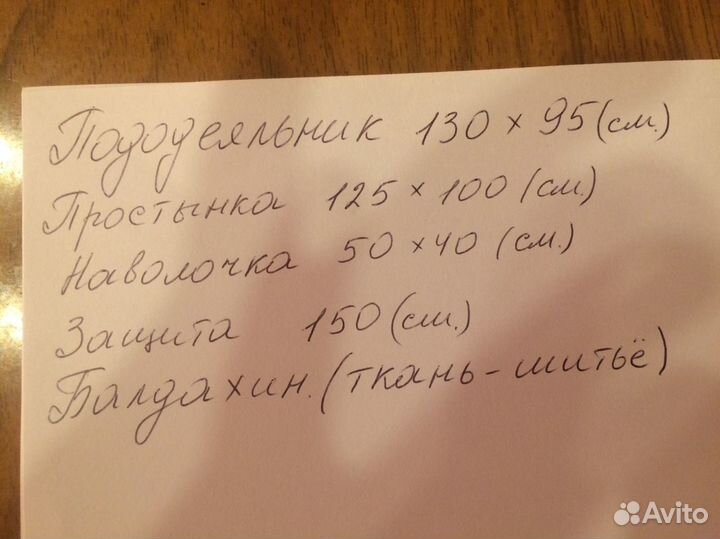 Пододеяльник 130 x 95 (см.)
Простынка 125 x 100 (см.)
Наволочка 50 x 40 (см.)
Защита 150 (см.)
Балдахин. (ткань-шитьё)
Avito